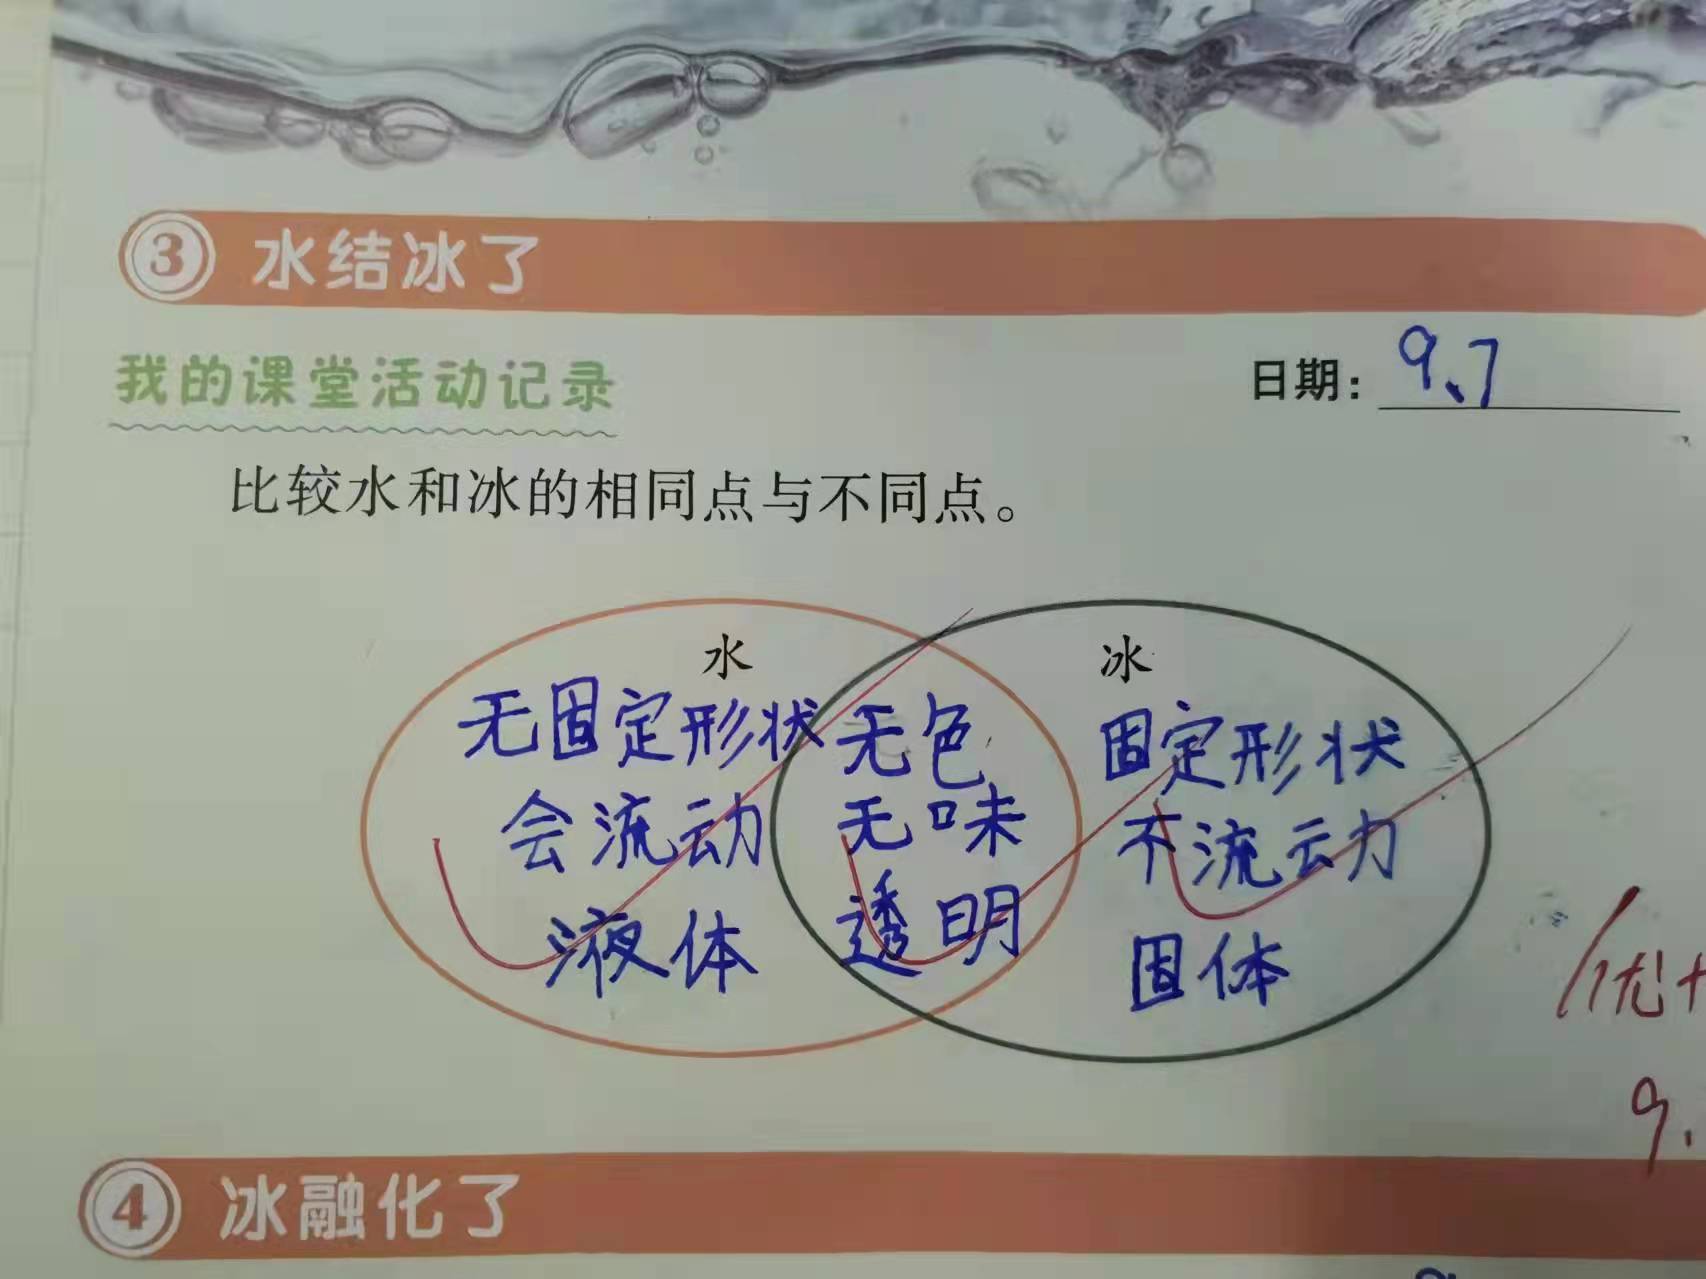 ③ 水结冰了
我的课堂活动记录
日期：9.7
比较水和冰的相同点与不同点。
水
冰
无固定形状
会流动
液体
无色
无味
透明
固定形状
不流动
固体
优+
9.
④ 冰融化了